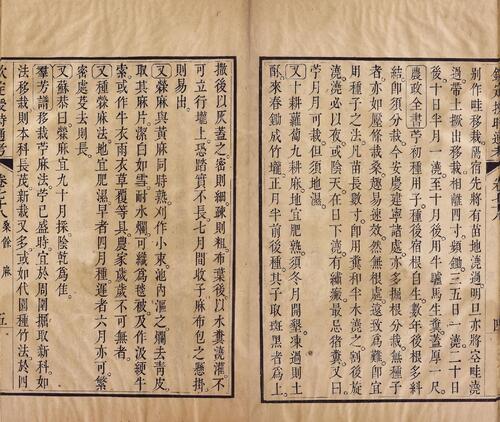 別作畦移栽。隔宿先將有苗地澆過明旦亦將空畦澆
過帶土撅出移栽相離四寸頻鋤三五日一澆二十日
後十日半月一澆至十月後用牛驢馬生糞蓋厚一尺。
農政全書苧初種用子種後宿根自生數年後根多糾
結卽須分栽今安慶建寧諸處亦多掘根分栽無種子
者亦如屋條栽桑趣易速效然無根處遠致為難卽宜
用種子之法凡苗長數寸卽用糞和半水澆之割後旋
澆澆必以夜或陰天在日下澆有繡瘢最忌猪糞又曰
苧月月可栽但須地濕。
又十耕蘿蔔九耕麻地宜肥熟須冬月開墾凍過則土
酥來春鋤成竹壠正月半前後種其子取斑黑者為上。
撒後以灰蓋之密則細疎則粗布葉後以水糞澆灌不
可立行壠上恐踏實不長七月間收子麻布包之懸掛
則易出。
又檾麻與黃麻同時熟刈作小束池內漚之爛去靑皮
取其麻片潔白如雪耐水爛可織為毯被及作汲綆牛
索或作牛衣雨衣草覆等具農家歲歲不可無者。
又種檾麻法地宜肥濕早者四月種遲者六月亦可繁
密處芟去則長。
又蘇恭曰檾麻宜九十月採陰乾為佳。
羣芳譜移栽苧麻法苧已盛時宜於周圍掘取新科如
法移栽則本科長茂新栽又多或如代園種竹法於四
欽定授時通考 卷七十八 桑餘 麻 五